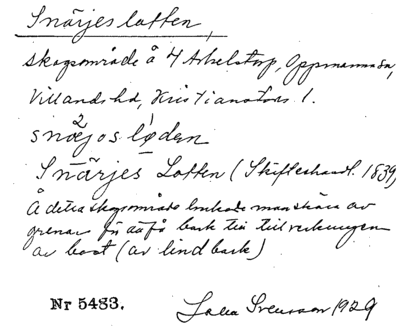 Snärjeslotten,
skogsområde å 4 Arkelstorp, Oppmanna sn,
Villands hd, Kristianstads l.
snæjosloden
Snärjes Lotten (Skifteshandl. 1839)
Å detta skogsområde brukade man skära av
grenar för att få bark till tillverkningen
av bast (av lindbark)
Nr 5483. Svensson 1929